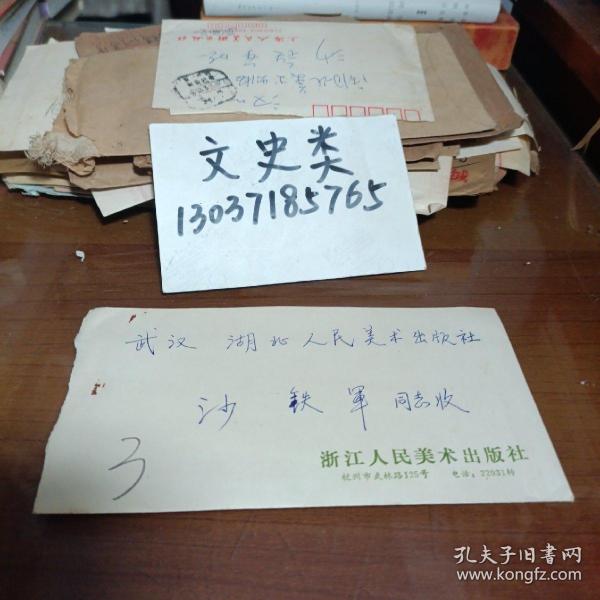 上海人民美术出版社
文史类
13037185765
武汉 湖北人民美术出版社
沙 铁军 同志收
3
浙江人民美术出版社
杭州市武林路125号 电话:22931转
孔夫子旧书网
www.kongfz.com